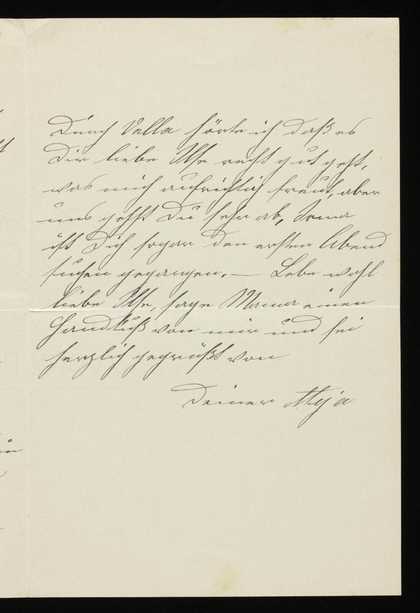 Durch Vella hörte ich daß es
Dir liebe Ilse recht gut geht,
was mich aufrichtig freut, aber
uns gehst Du sehr ab, Irma
ist Dich sogar den ersten Abend
suchen gegangen. — Lebe wohl
liebe Ilse, sage Mama einen
Handkuß von mir und sei
herzlich gegrüßt von
Deiner